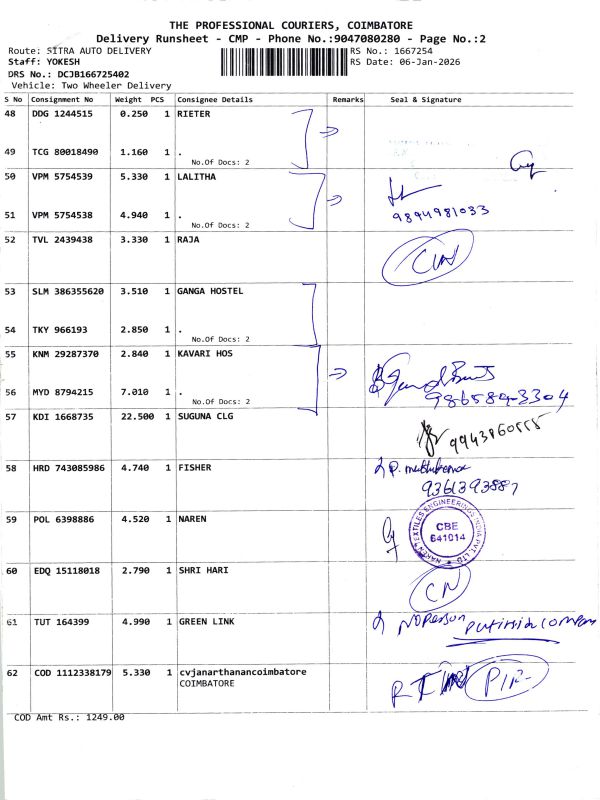 THE PROFESSIONAL COURIERS, COIMBATORE
Delivery Runsheet - CMP - Phone No.:9047080280 - Page No.:2
Route: SITRA AUTO DELIVERY
RS No.: 1667254
Staff: YOKESH
RS Date: 06-Jan-2026
DRS No.: DCJB166725402
Vehicle: Two Wheeler Delivery
S No Consignment No Weight PCS Consignee Details Remarks Seal & Signature
48 DDG 1244515 0.250 1 RIETER
49 TCG 80018490 1.160 1 .
No.Of Docs: 2
50 VPM 5754539 5.330 1 LALITHA
51 VPM 5754538 4.940 1 .
9894981033
No.Of Docs: 2
52 TVL 2439438 3.330 1 RAJA
53 SLM 386355620 3.510 1 GANGA HOSTEL
54 TKY 966193 2.850 1 .
No.Of Docs: 2
55 KNM 29287370 2.840 1 KAVARI HOS
56 MYD 8794215 7.010 1 .
No.Of Docs: 2
57 KDI 1668735 22.500 1 SUGUNA CLG
58 HRD 743085986 4.740 1 FISHER
59 POL 6398886 4.520 1 NAREN
NAREN TEXTILES ENGINEERINGS INDIA PVT. LTD
CBE
641014
60 EDQ 15118018 2.790 1 SHRI HARI
CN
61 TUT 164399 4.990 1 GREEN LINK
No Person
62 COD 1112338179 5.330 1 cvjanarthanancoimbatore
COIMBATORE
COD Amt Rs.: 1249.00